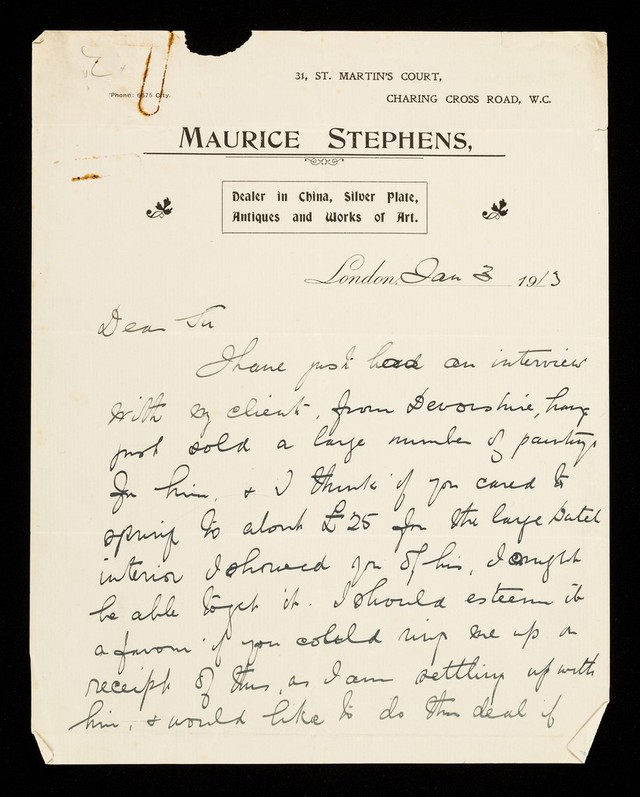 31, ST. MARTIN'S COURT,
'Phone: 6675 City.
CHARING CROSS ROAD, W.C.
MAURICE STEPHENS,
Dealer in China, Silver Plate,
Antiques and Works of Art.
London, Jan 3 1913
Dear Sir
I have just had an interview
with my client, from Devonshire, havg
just sold a large number of paintings
for him, & I think if you cared to
spring to about £25 for the large Dutch
interior I showed you of his, I might
be able to get it. I should esteem it
a favour if you could ring me up on
receipt of this, as I am settling up with
him, & would like to do this deal if